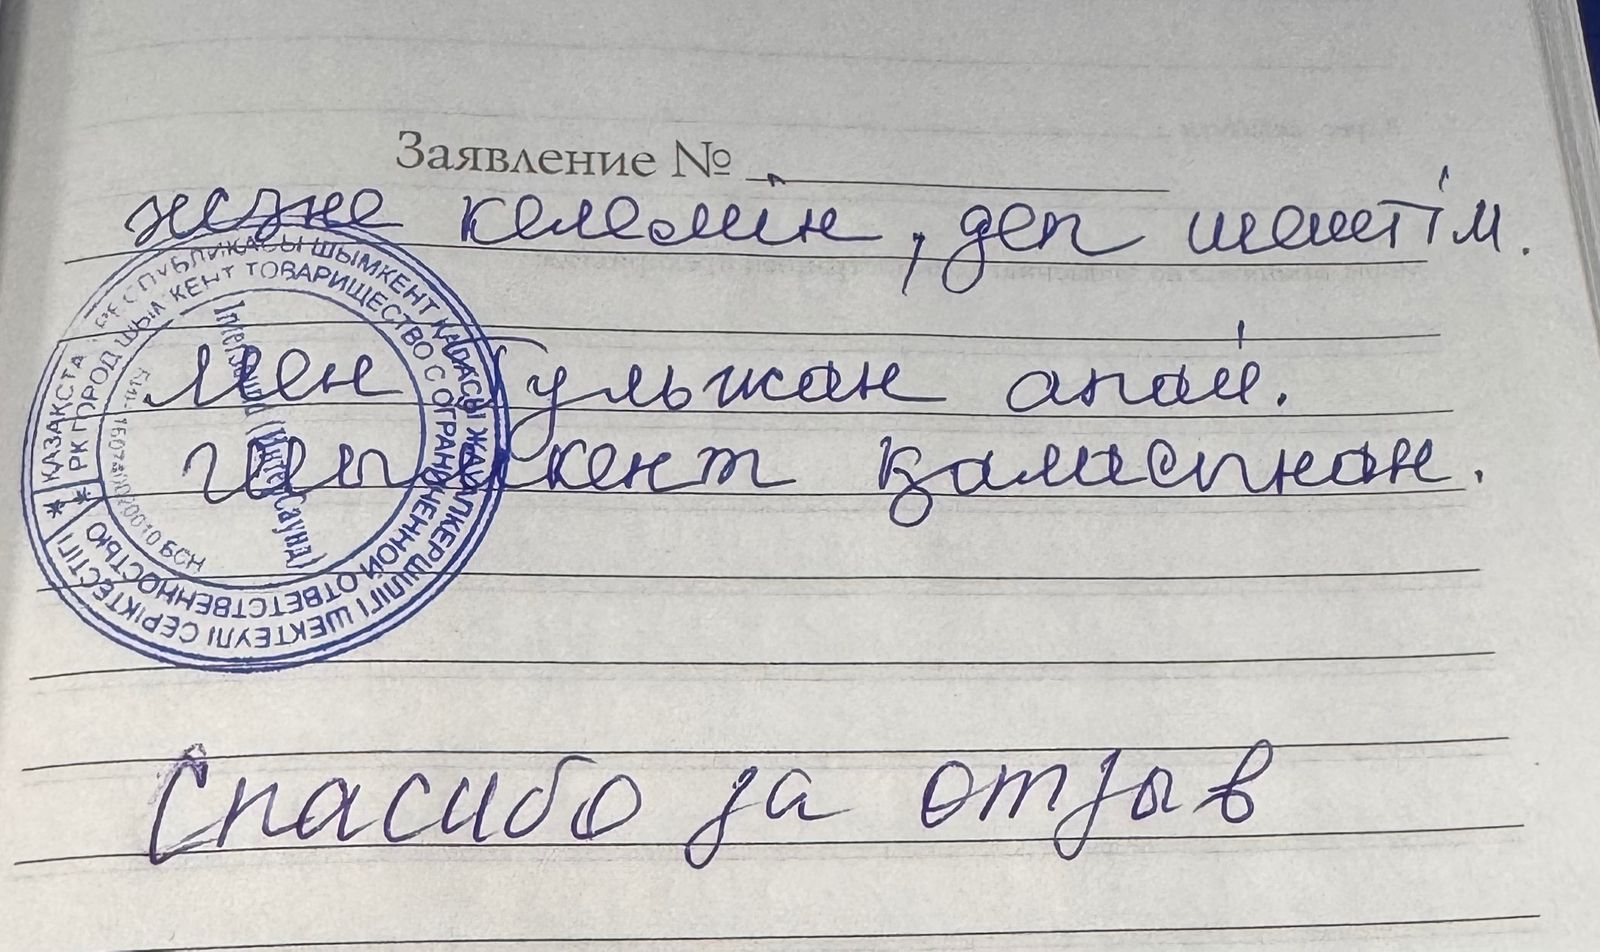 Заявление №
және келемін, деп шештім.
мен Гульжан апай.
Шымкент қаласынан.
ҚАЗАҚСТАН РЕСПУБЛИКАСЫ ШЫМКЕНТ ҚАЛАСЫ ЖАУАПКЕРШІЛІГІ ШЕКТЕУЛІ СЕРІКТЕСТІГІ
РК ГОРОД ШЫМКЕНТ ТОВАРИЩЕСТВО С ОГРАНИЧЕННОЙ ОТВЕТСТВЕННОСТЬЮ
Спасибо за отзыв